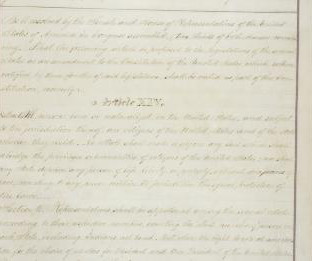 Be it resolved by the Senate and House of Representatives of the United
States of America in Congress assembled, two thirds of both Houses concur
ring, That the following article be proposed to the legislatures of the several
States as an amendment to the Constitution of the United States, which when
ratified by of said legislatures, shall be valid as part of the Con
stitution, namely:
Article XIV.
Section 1. persons born or naturalized in the United States, and subject
to the jurisdiction thereof, are citizens of the United States and of the State
wherein they reside. No State shall make or enforce any law which shall
abridge the privileges or immunities of citizens of the United States; nor shall
any State deprive any person of life, liberty, or property, without due process of
law, nor deny to any person within its jurisdiction the equal protection of
the laws.
Section 2. Representatives shall be apportioned among the several States
according to their respective numbers, counting the whole number of persons in
each State, excluding Indians not taxed. But when the right to vote at any elec
tion for the choice of electors for President and Vice President of the United States